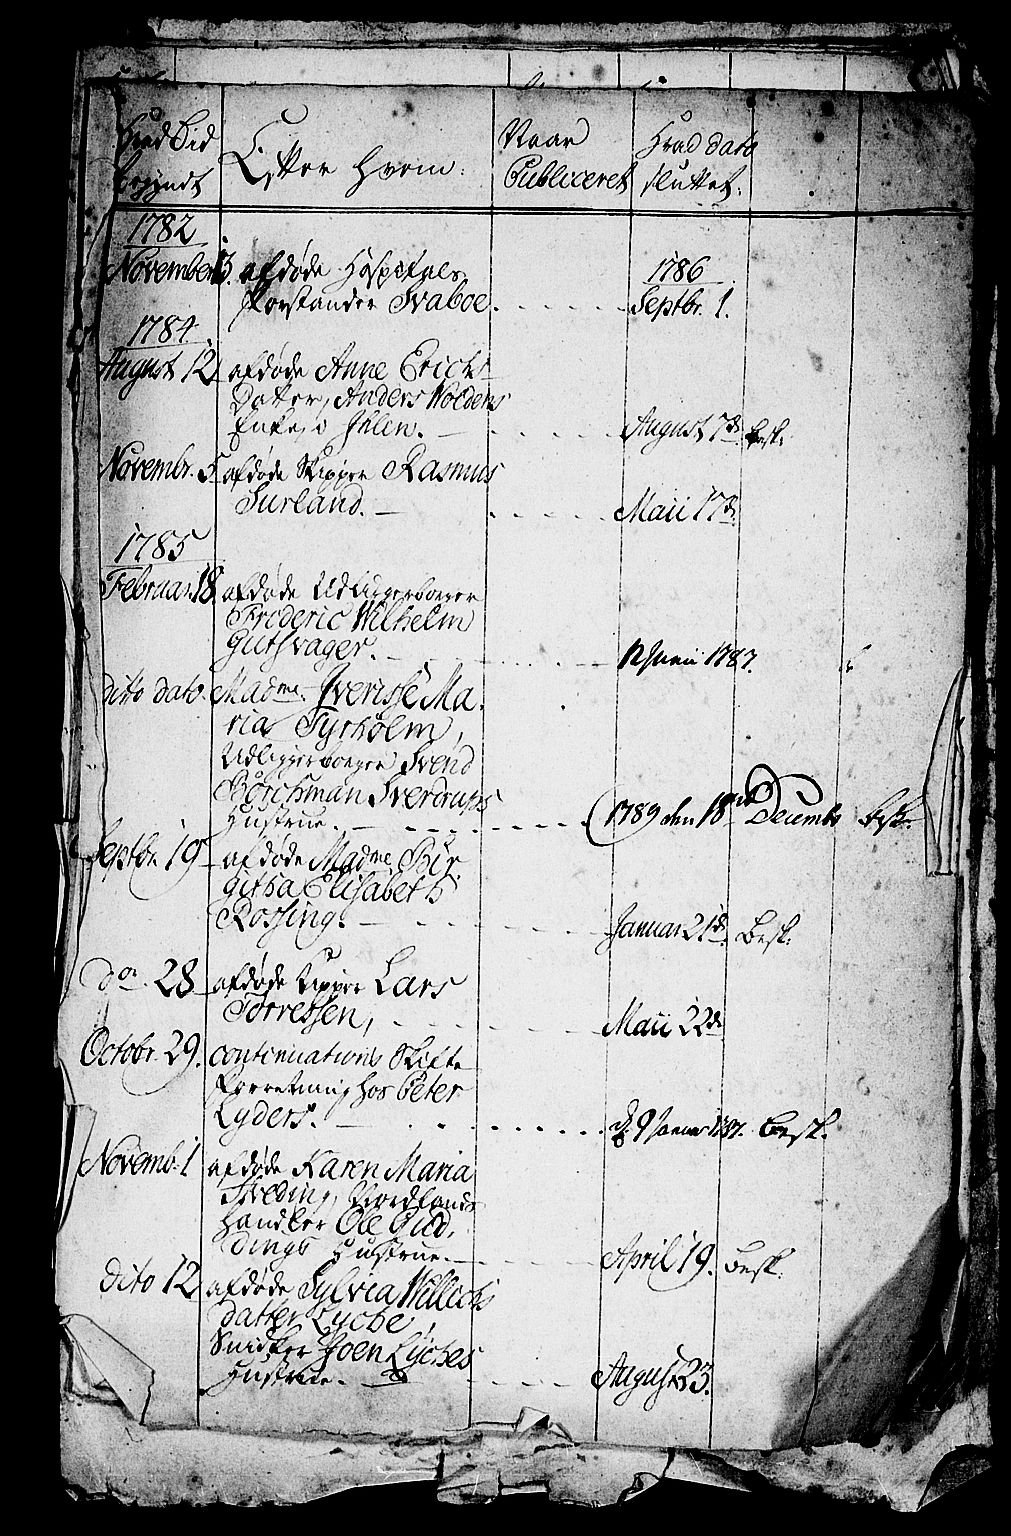 Hvad Tid
begyndt
Efter hvem:
Naar
Publiceret
Hvad dato
sluttet:
1782
November 13. afdøde Hospitals
forstander Svaboe.
1786
Septbr. 1.
1784
August 12 afdøde Anne Erichs
Datter, Anders Woldens
Enke, i Ihlen. August 7de besk:
Novembr. 5 afdøde Skipper Rasmus
Surland. Maii 17de
1785
Februar 18. afdøde Udliggerborger
Frideric Wilhelm
Gutsvager. 12 Junii 1787.
ditto dato. Madme. Iverisse Ma-
ria Tyrholm,
Udliggerborger Svend
Børchman Sverdrups
Hustrue. 1789 den 18de Decembr besk.
Septbr. 19 afdøde Madme Bir-
githa Elisabeth
Rossing. Januar 21de. Besk:
do. 28 afdøde Skipper Lars
Torressen, Maii 22de
Octobr. 29. continuations Skifte
forretning hos Peter
Lyders. d. 9 Januar 1787. besk.
Novemb. 1 afdøde Karen Maria
Nordlands
Handler Ole Bud-
dings Hustrue. April 19. besk:
dito 12 afdøde Sylvia Willichs
datter Lyche,
Snidker Joen Lyches
Hustrue. August 23.